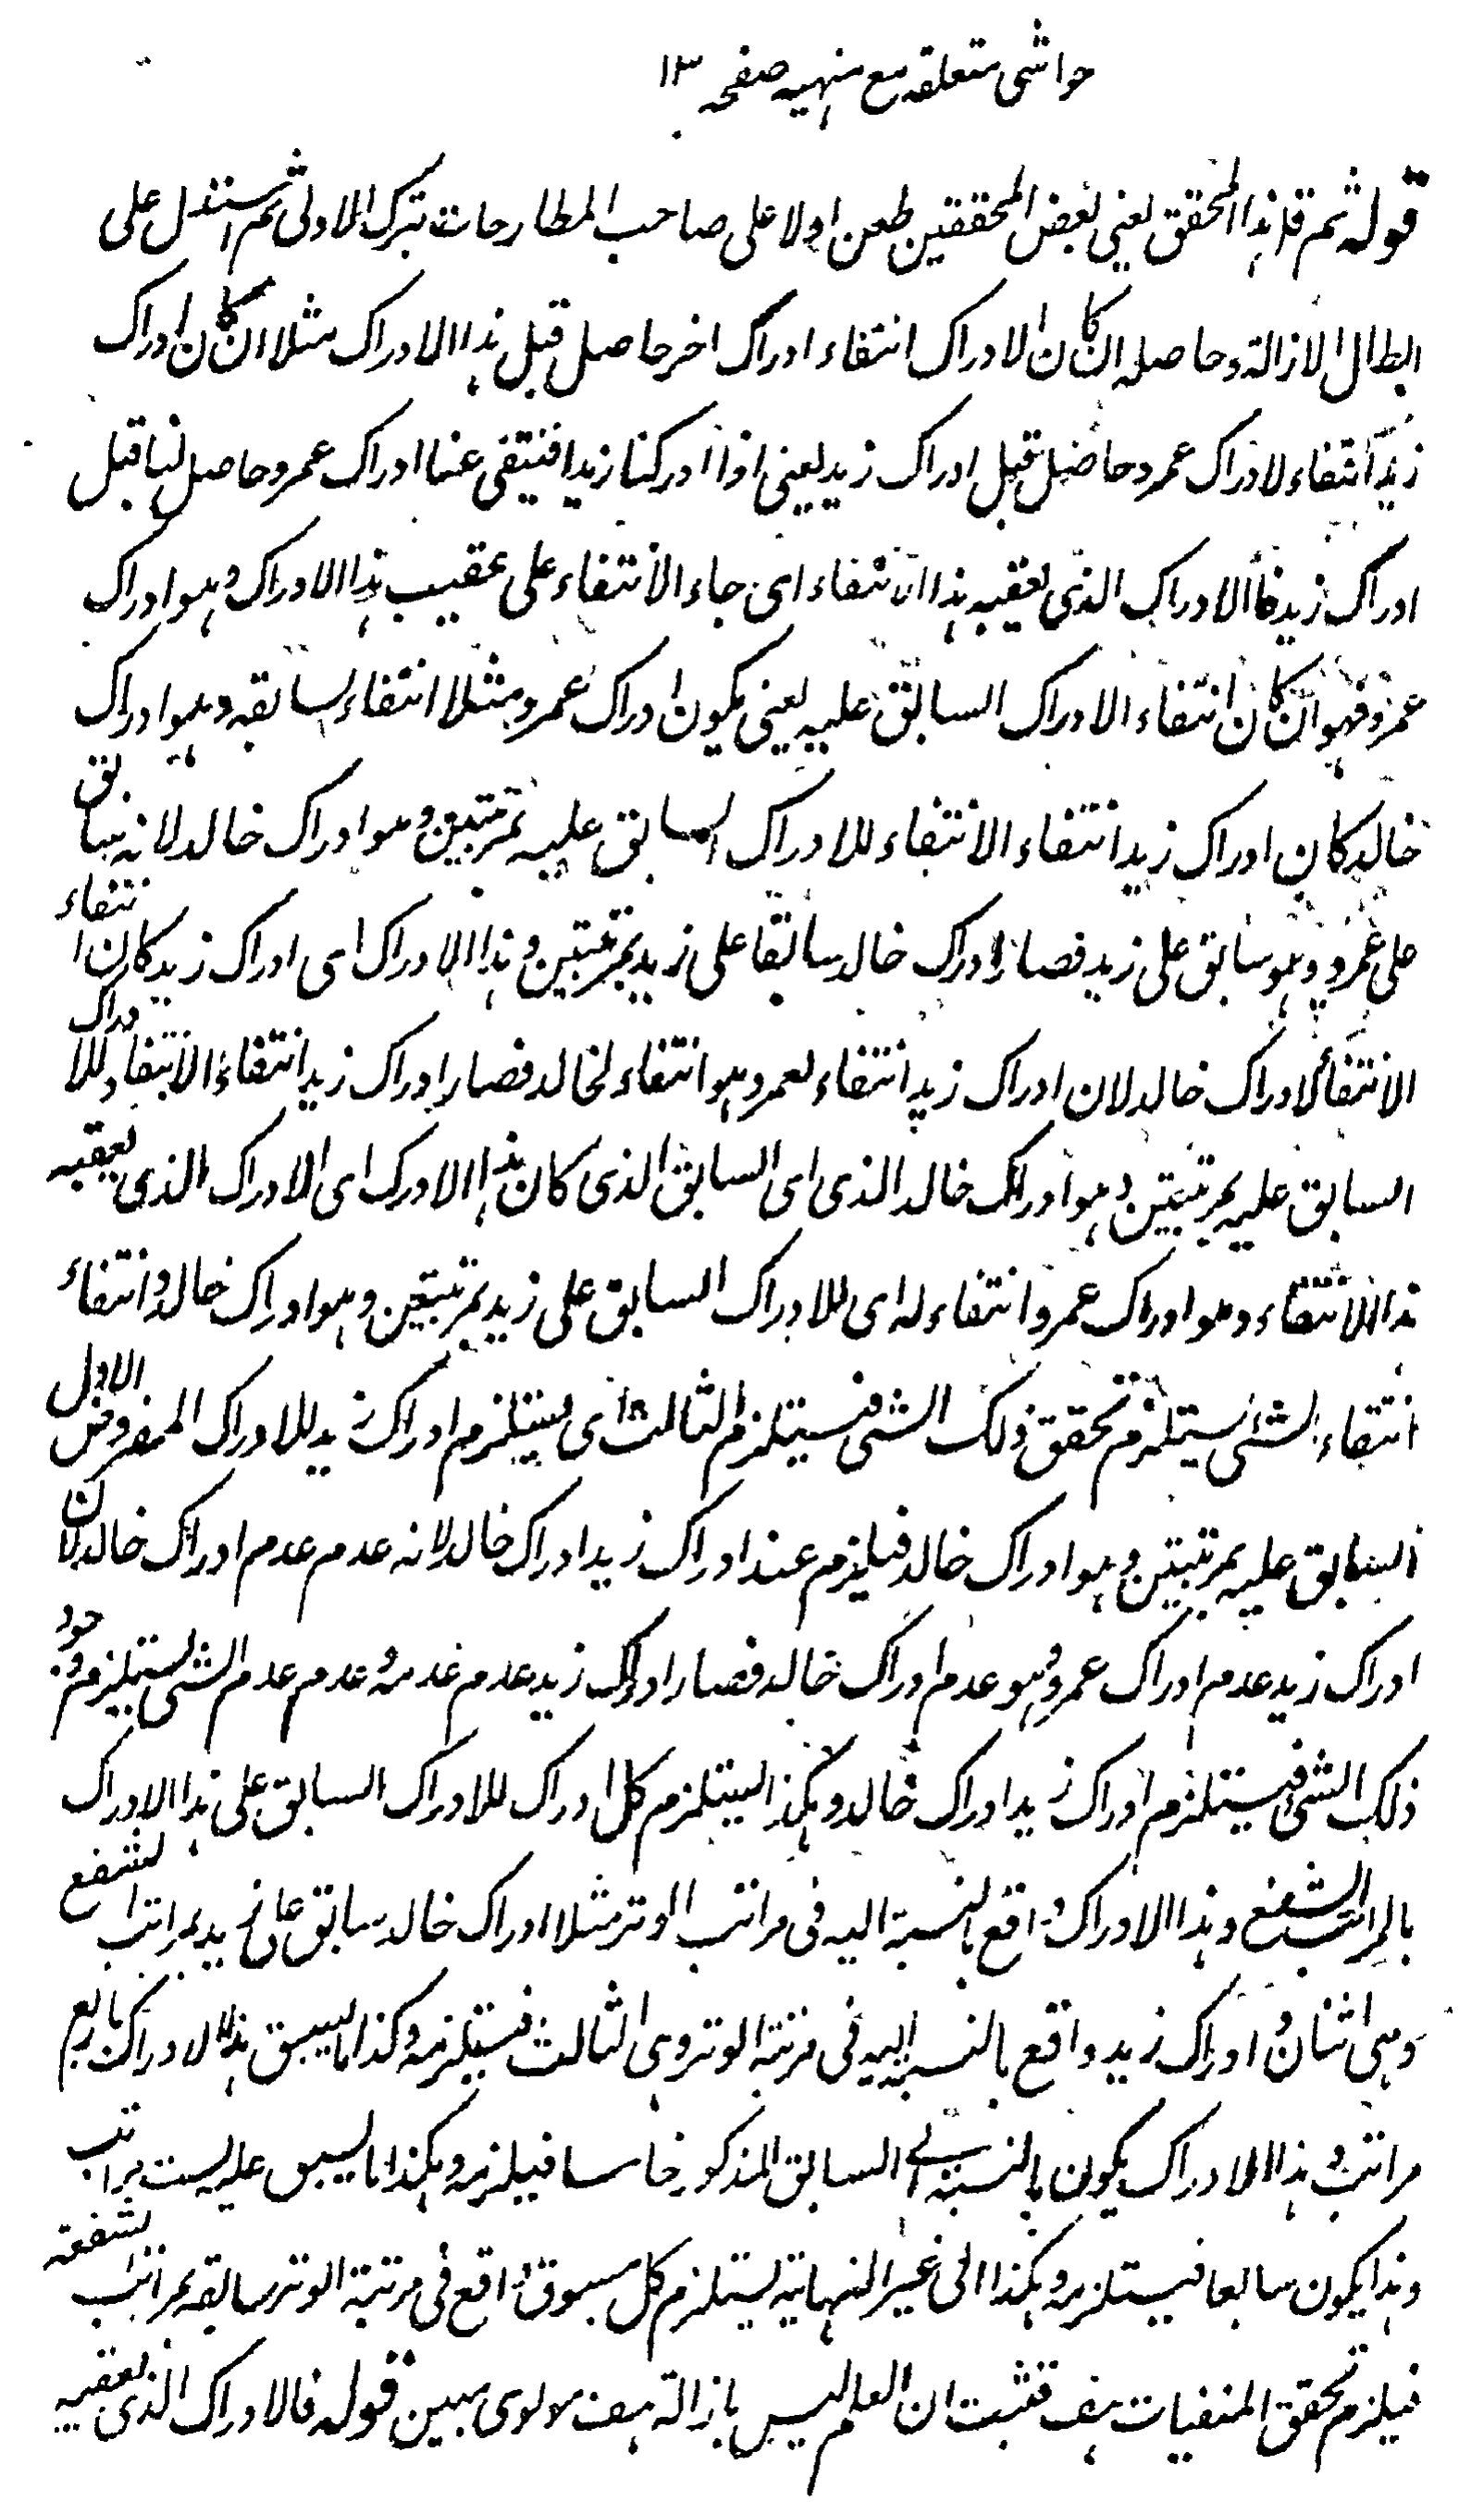 حواشی متعلقہ مع منہیہ صفحہ ۱۳
قولہ ثم قال ہذا المحقق یعنی بعض المحققین طعن اولا علی صاحب المطارحات بترک الاولی ثم استدل علی
ابطال الازالۃ وحاصلہ ان کان الادراک انتفاء ادراک اخر حاصل قبل ہذا الادراک مثلا ان کان ادراک
زید انتفاء لادراک عمرو حاصل قبل ادراک زید یعنی اذا ادرکنا زیدا فینتفی عنا ادراک عمرو حاصل لنا قبل
ادراک زید فالادراک الذی یعقبہ ہذا الانتفاء ای جاء الانتفاء علی عقیب ہذا الادراک وہو ادراک
عمرو فہو ان کان انتفاء الادراک السابق علیہ یعنی یکون ادراک عمرو مثلا انتفاء لسابقہ وہو ادراک
خالد کان ادراک زید انتفاء الانتفاء للادراک السابق علیہ بمرتبتین وہو ادراک خالد لانہ سابق
علی عمرو وہو سابق علی زید فصار ادراک خالد سابقا علی زید بمرتبتین وہذا الادراک ای ادراک زید کان انتفاء
الانتفاء لادراک خالد لان ادراک زید انتفاء لعمرو وہو انتفاء لخالد فصار ادراک زید انتفاء الانتفاء للادراک
السابق علیہ بمرتبتین وہو ادراک خالد الذی ای السابق الذی کان ہذا الادراک ای الادراک الذی یعقبہ
ہذا الانتفاء وہو ادراک عمرو انتفاء لہ ای للادراک السابق علی زید بمرتبتین وہو ادراک خالد وانتفاء
انتفاء الشئ یستلزم تحقق ذلک الشئ فیستلزم الثالث ای یستلزم ادراک زید للادراک المفروض الاول
السابق علیہ بمرتبتین وہو ادراک خالد فیلزم عند ادراک زید ادراک خالد لانہ عدم عدم ادراک خالد لان
ادراک زید عدم ادراک عمرو وہو عدم ادراک خالد فصار ادراک زید عدم عدمہ وعدم عدم الشئ یستلزم وجود
ذلک الشئ فیستلزم ادراک زید ادراک خالد وہکذا یستلزم کل ادراک للادراک السابق علی ہذا الادراک
بالمراتب الشفع وہذا الادراک واقع بالنسبۃ الیہ فی مراتب الوتر مثلا ادراک خالد سابق علی زید بمراتب الشفع
وہی اثنان وادراک زید واقع بالنسبۃ الیہ فی مرتبۃ الوتر وہی الثالث فیستلزمہ وکذا ما یسبق ہذا الادراک باربع
مراتب وہذا الادراک یکون بالنسبۃ الی السابق المذکور خامسا فیلزمہ وہکذا ما یسبق علیہ بست مراتب
وہذا یکون سابعا فیستلزمہ وہکذا الی غیر النہایۃ یستلزم کل مسبوق واقع فی مرتبۃ الوتر سابقہ بمراتب شفعۃ
فیلزم تحقق المنفیات ہف فثبت ان العلم لیس بازالۃ ہف مولوی مبین قولہ فالادراک الذی یعقبہ